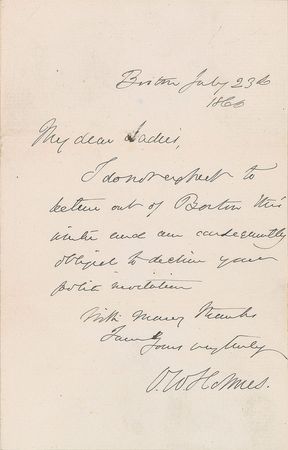 Boston July 23d
1866
My dear Ladies,
I do not expect to
lecture out of Boston this
winter and am consequently
obliged to decline your
polite invitation
With many thanks
I am
Yours very truly
O. W. Holmes.